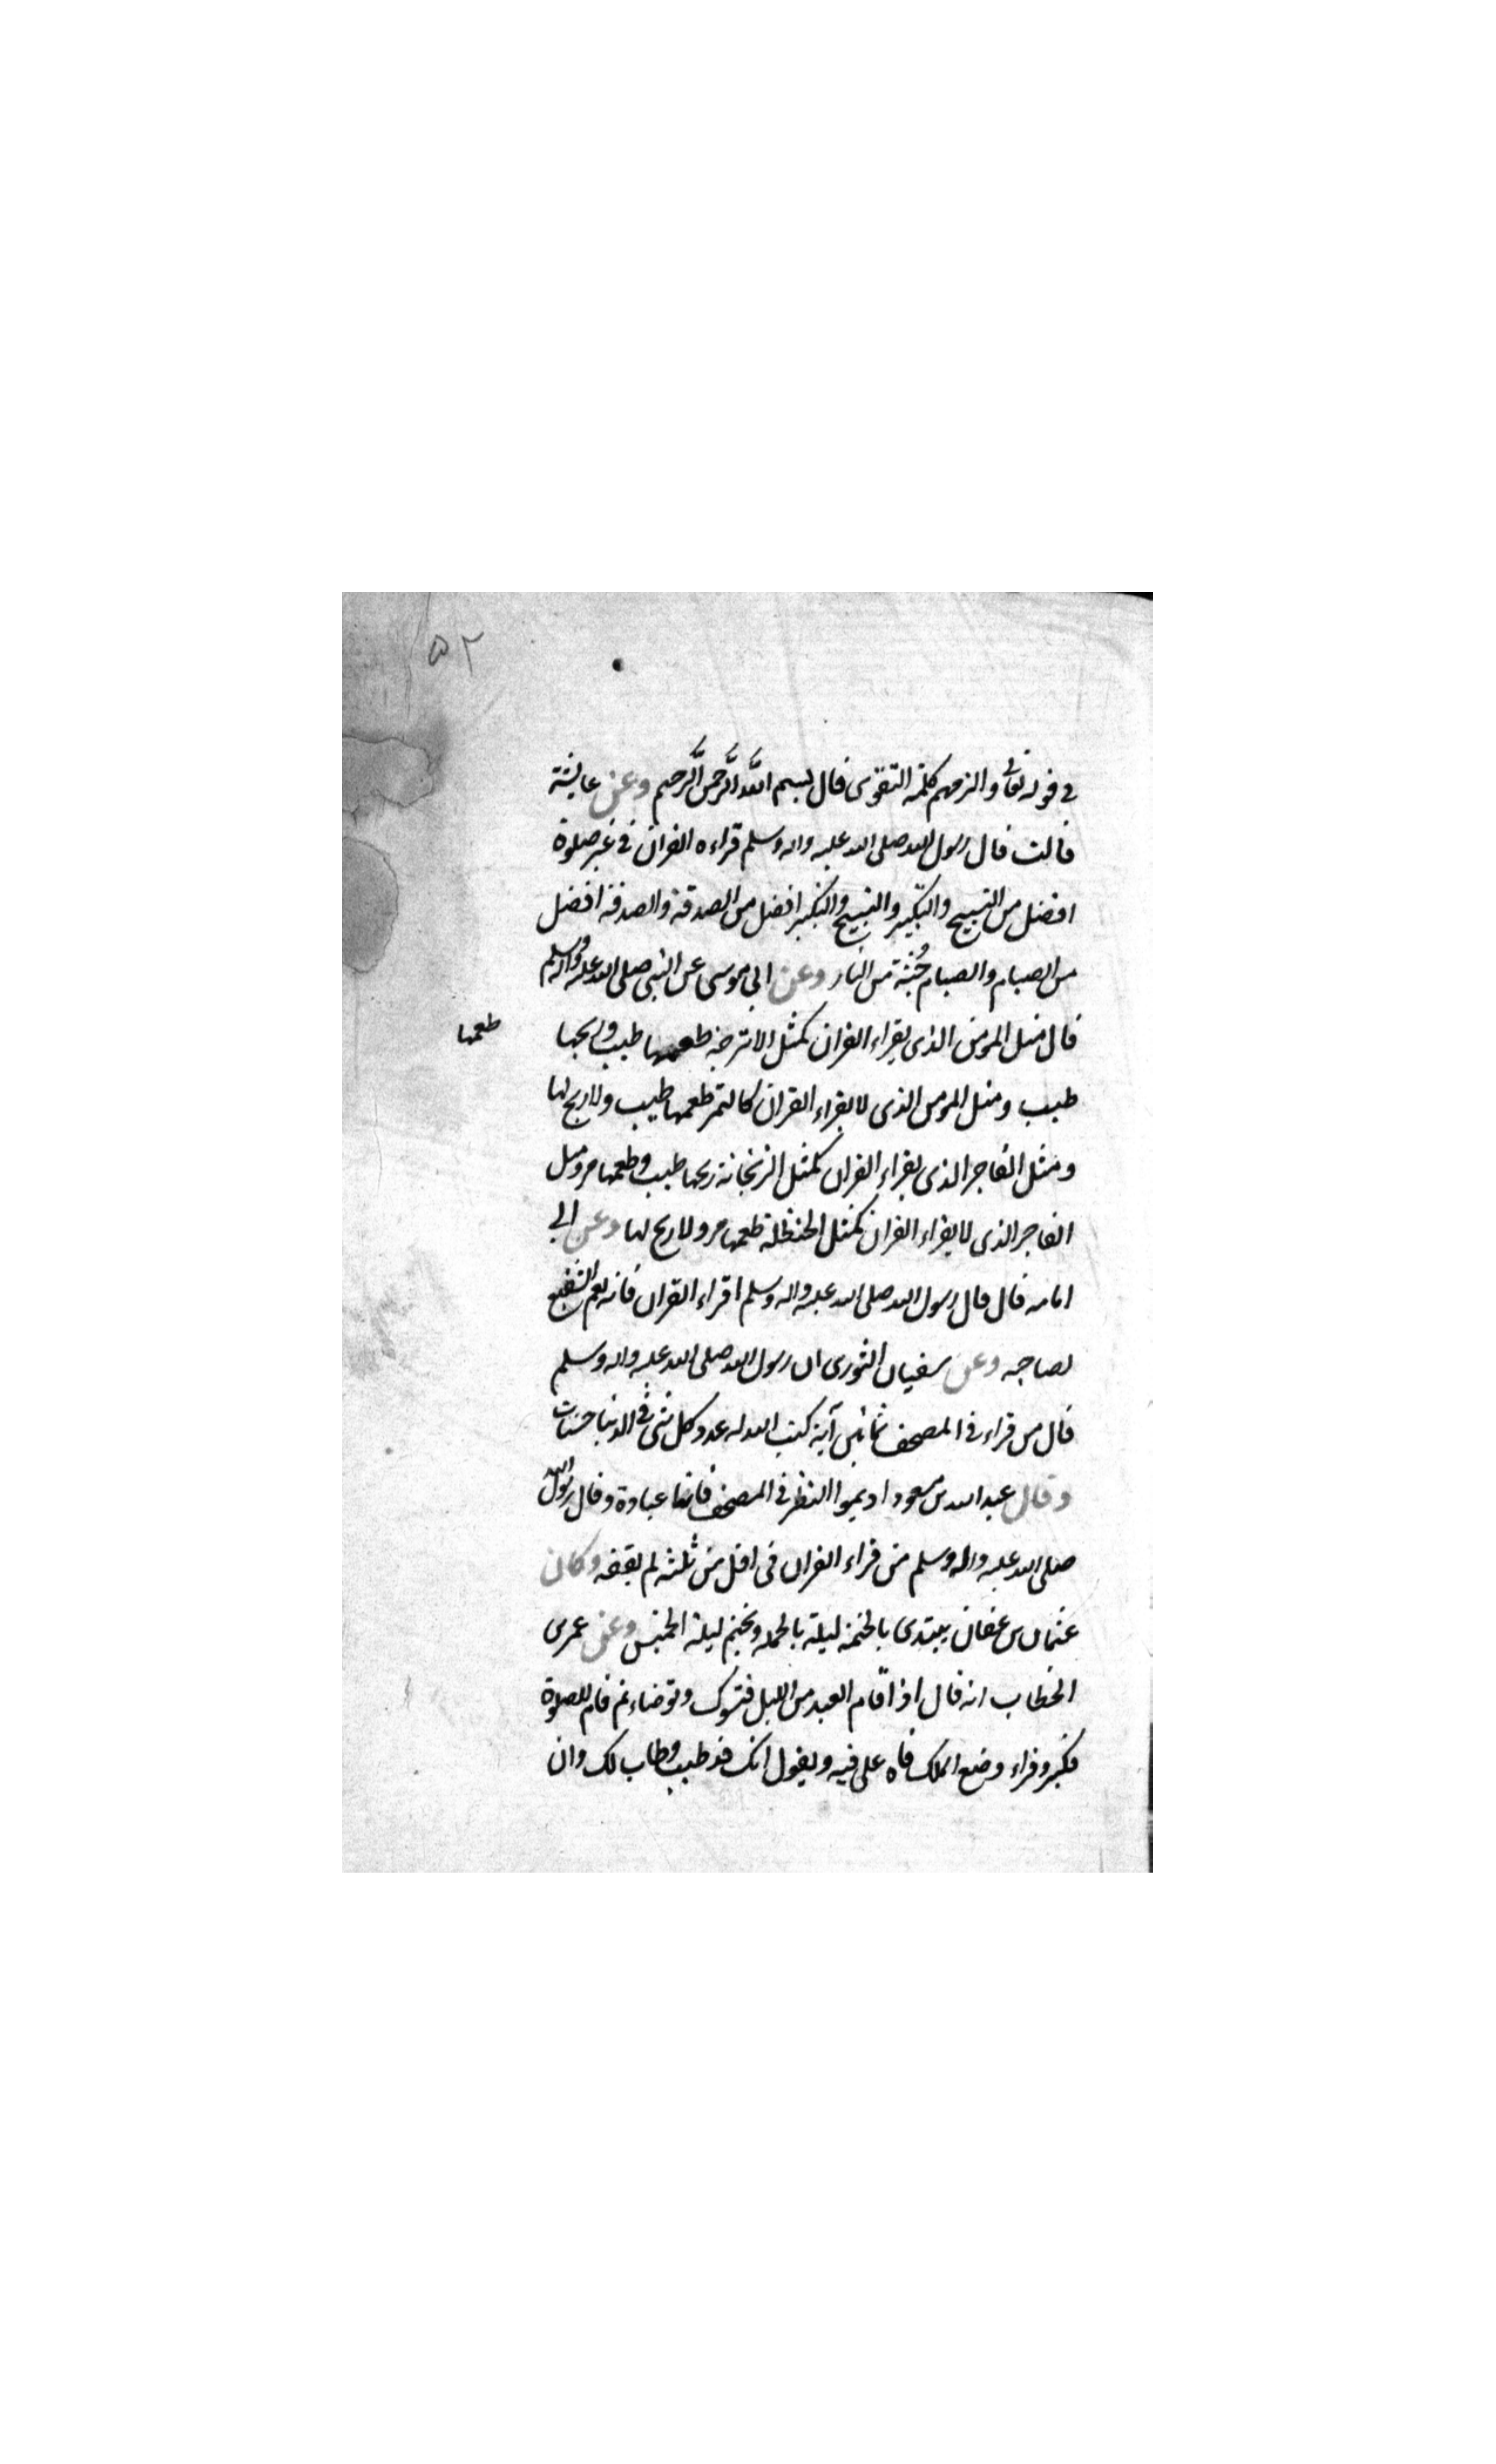 ۵۲
في قوله تعالى والزمهم كلمة التقوى قال بسم الله الرحمن الرحيم وعن عايشة
قالت قال رسول الله صلى الله عليه واله وسلم قراءه القران في غير صلوة
افضل من التسبيح والتكبير والتسبيح والتكبير افضل من الصدقة والصدقة افضل
من الصيام والصيام جُنّة من النار وعن ابي موسى عن النبي صلى الله عليه واله وسلم
قال مثل المومن الذي يقراء القران كمثل الاترجة طعمها طيب وريحها
طعمها
طيب ومثل المومن الذي لا يقراء القران كالتمر طعمها طيب ولا ريح لها
ومثل الفاجر الذي يقراء القران كمثل الريحانة ريحها طيب وطعمها مر ومثل
الفاجر الذي لا يقراء القران كمثل الحنظلة طعمها مر ولا ريح لها وعن ابي
امامه قال قال رسول الله صلى الله عليه واله وسلم اقراء القران فانه نعم الشفيع
لصاحبه وعن سفيان الثوري ان رسول الله صلى الله عليه واله وسلم
قال من قراء في المصحف آية كتب الله له عدد كل شي في الدنيا حسنات
وقال عبد الله بن مسعود اديموا النظر في المصحف فانها عبادة وقال رسول الله
صلى الله عليه واله وسلم من قراء القران في اقل من ثلثه لم يفقه وكان
عثمان بن عفان يبتدي بالختمة ليلة بالجمله ويختم ليلة الخميس وعن عمر بن
الخطاب انه قال اذا قام العبد من الليل فتسوك وتوضاء ثم قام للصلوة
فكبر وقراء وضع الملك فاه على فيه ويقول انك قد طيب وطاب لك وان